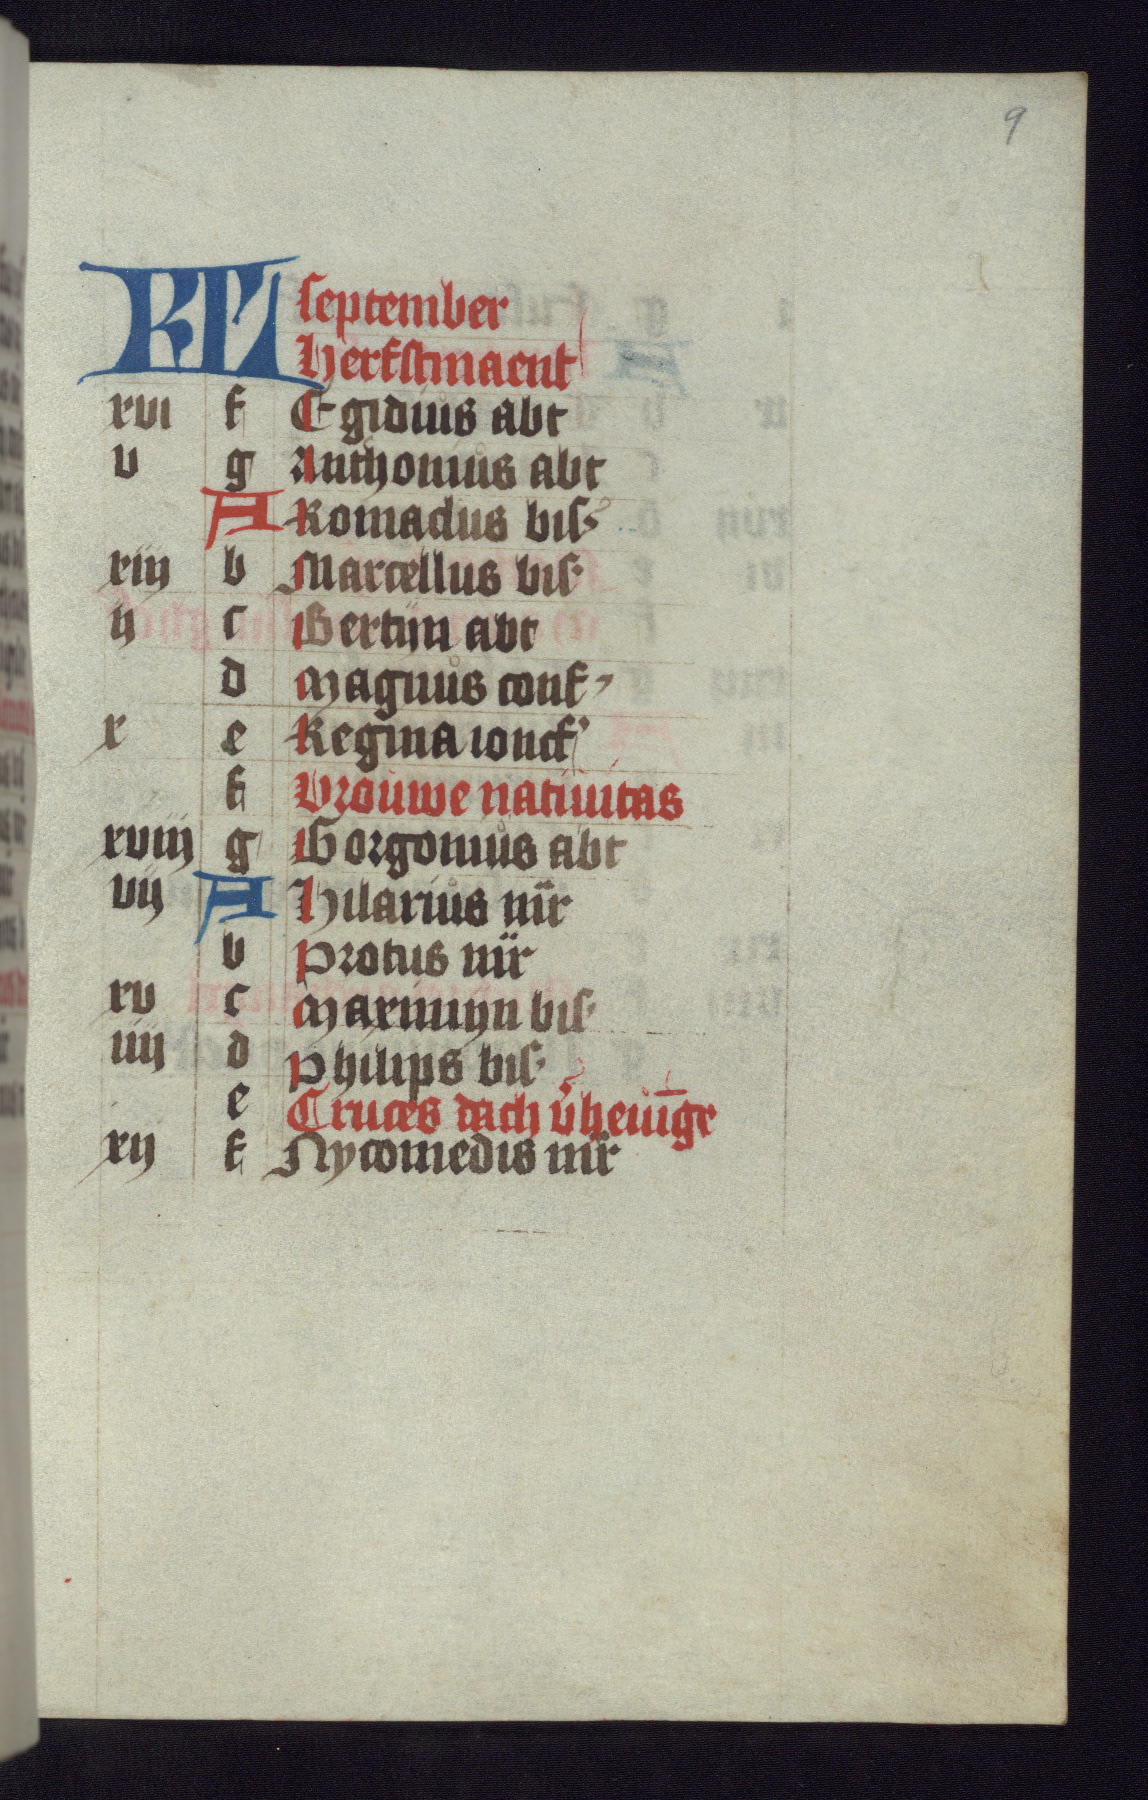 9
KL september
herfstmaent
xvi f Egidius abt
v g Anthonius abt
A Romadus bis
xiij b Marcellus bis
ij c Bertijn abt
d Magnus conf
x e Regina ioncf
f Vrouwe natiuitas
xviij g Gorgonius abt
vij A Hilarius mr
b Protus mr
xv c Maximijn bis
iiij d Philips bis
e Cruces dach vheuige
xij f Nycomedis mr